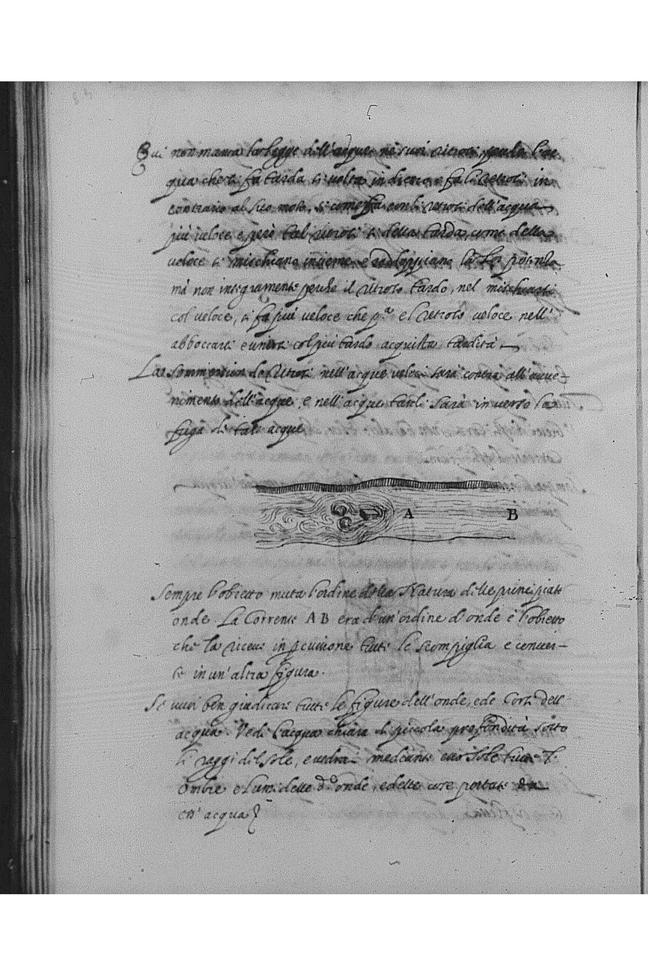 Qui non manca la legge dell'acque ne suoi retrosi, perche l'ac
qua che si fa tarda si volta indietro, e fa li retrosi in
contrario al suo moto, si come fa con li retrosi dell'acqua
più veloce e però tal retrosi si della tarda come della
veloce si mischiano insieme e radoppiano la lor potentia
mà non integramente perche il retroso tardo, nel mischiarsi
col veloce, si fa più veloce che p.ª e el retroso veloce nell'
abboccarsi e unirsi col più tardo acquista tardità.
La sommersion de retrosi nell'acque veloci sarà contra all'auue-
nimento dell'acque, e nell'acque tarde sarà in verso la
fuga di tali acque
A B
Sempre l'obietto muta l'ordine della Natura delle principiate
onde. La Corrente A B era d'un'ordine d'onde e l'obietto
che la riceve in percusione tutte le scompiglia e conver-
te in un'altra figura.
Se vuoi ben giudicare tutte le figure dell'onde, e de Corsi dell'
acqua. Vedi l'acqua chiara di piccola profondità sotto
li raggi del Sole, e vedrai mediante esso Sole tutte l'
ombre e lumi delle d.e onde, e delle cose portate da
ess' acqua